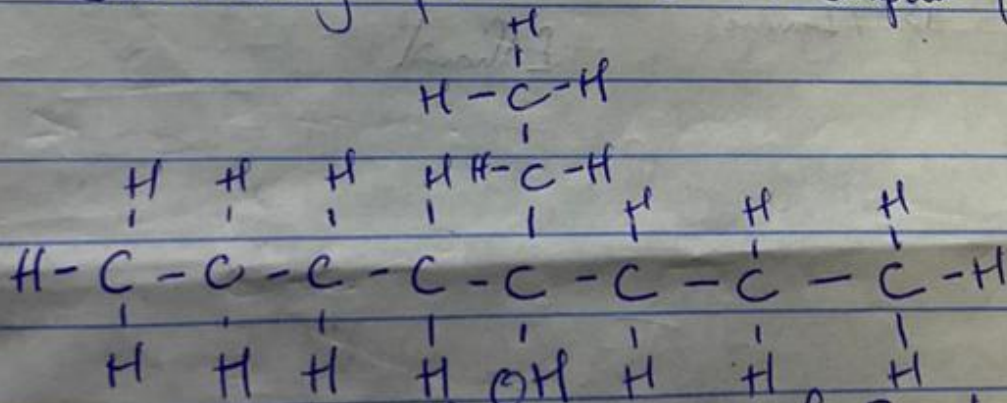 H
H - C - H
H H H H H - C - H H H H
H - C - C - C - C - C - C - C - C - H
H H H H OH H H H